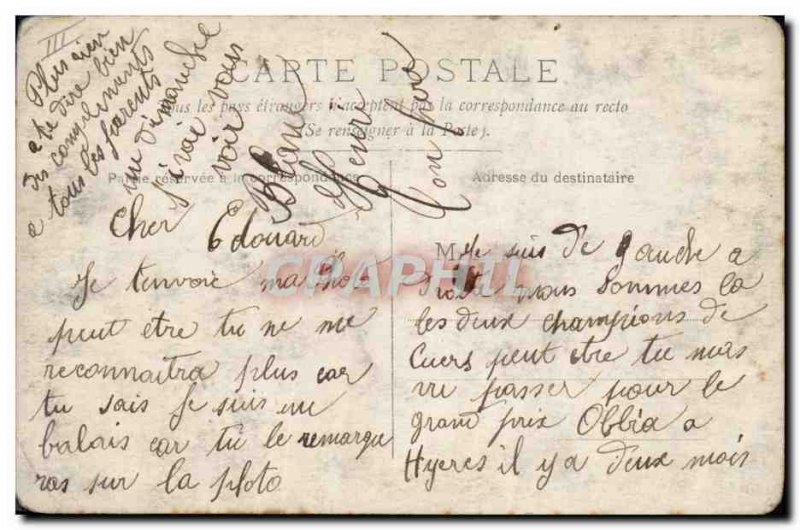 III
CARTE POSTALE
Tous les pays étrangers n'acceptent pas la correspondance au recto
(Se renseigner à la Poste).
Partie réservée à la correspondance
Adresse du destinataire
Cher Edouard
Je tenvoie ma
peut etre tu ne me
reconnaitra plus car
tu sais Je suis un
balais car tu le remarque
ras sur la ploto
M
Je suis de gauche a
nous sommes la
les deux champions de
Cuers peut etre tu mas
vu passer pour le
grand prix Obbia a
Hyeres il y a deux mois
Plus rien
a te dire bien
des complements
a tous les parents
un dimanche
J irai vous
voir
Blanc
Henri
Ton
CARAPHIL